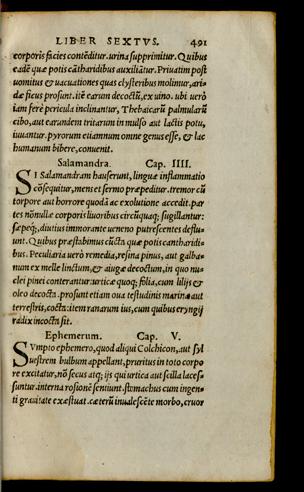 LIBER SEXTVS. 491
corporis facies contẽditur. urina supprimitur. Quibus
eadẽ quæ potis cãtharidibus auxiliãtur. Priuatim post
uomitus & uacuationes quas clysteribus molimur, ari-
dæ ficus prosunt. itẽ earum decoctũ, ex uino. ubi uerò
iam ferè pericula inclinantur, Thebaicarũ palmularũ
cibo, aut earundem tritarum in mulso aut lactis potu,
iuuantur. pyrorum etiamnum omne genus esse, & lac
humanum bibere, conuenit.
Salamandra. Cap. IIII.
SI Salamandram hauserunt, linguæ inflammatio
cõsequitur, mens et sermo præpeditur. tremor cũ
torpore aut horrore quodã ac exolutione accedit. par
tes nõnullæ corporis liuoribus circũquaq; sugillantur:
sæpeq;, diutius immorante ueneno putrescentes deflu-
unt. Quibus præstabimus cũcta quæ potis cantharidi-
bus. Peculiaria uerò remedia, resina pinus, aut galba-
num ex melle linctum, & aiugæ decoctum, in quo nu-
clei pinei conterantur: urticæ quoq; folia, cum lilijs &
oleo decocta. prosunt etiam oua testudinis marinæ aut
terrestris, cocta: item ranarum ius, cum quibus eryngij
radix incocta sit.
Ephemerum. Cap. V.
SVmpto ephemero, quod aliqui Colchicon, aut syl
uestrem bulbum appellant, pruritus in toto corpo
re excitatur, nõ secus atq; ijs qui urtica aut scilla laces-
suntur. interna rosionẽ sentiunt. stomachus cum ingen-
ti grauitate exæstuat. cæterũ inualescẽte morbo, cruor